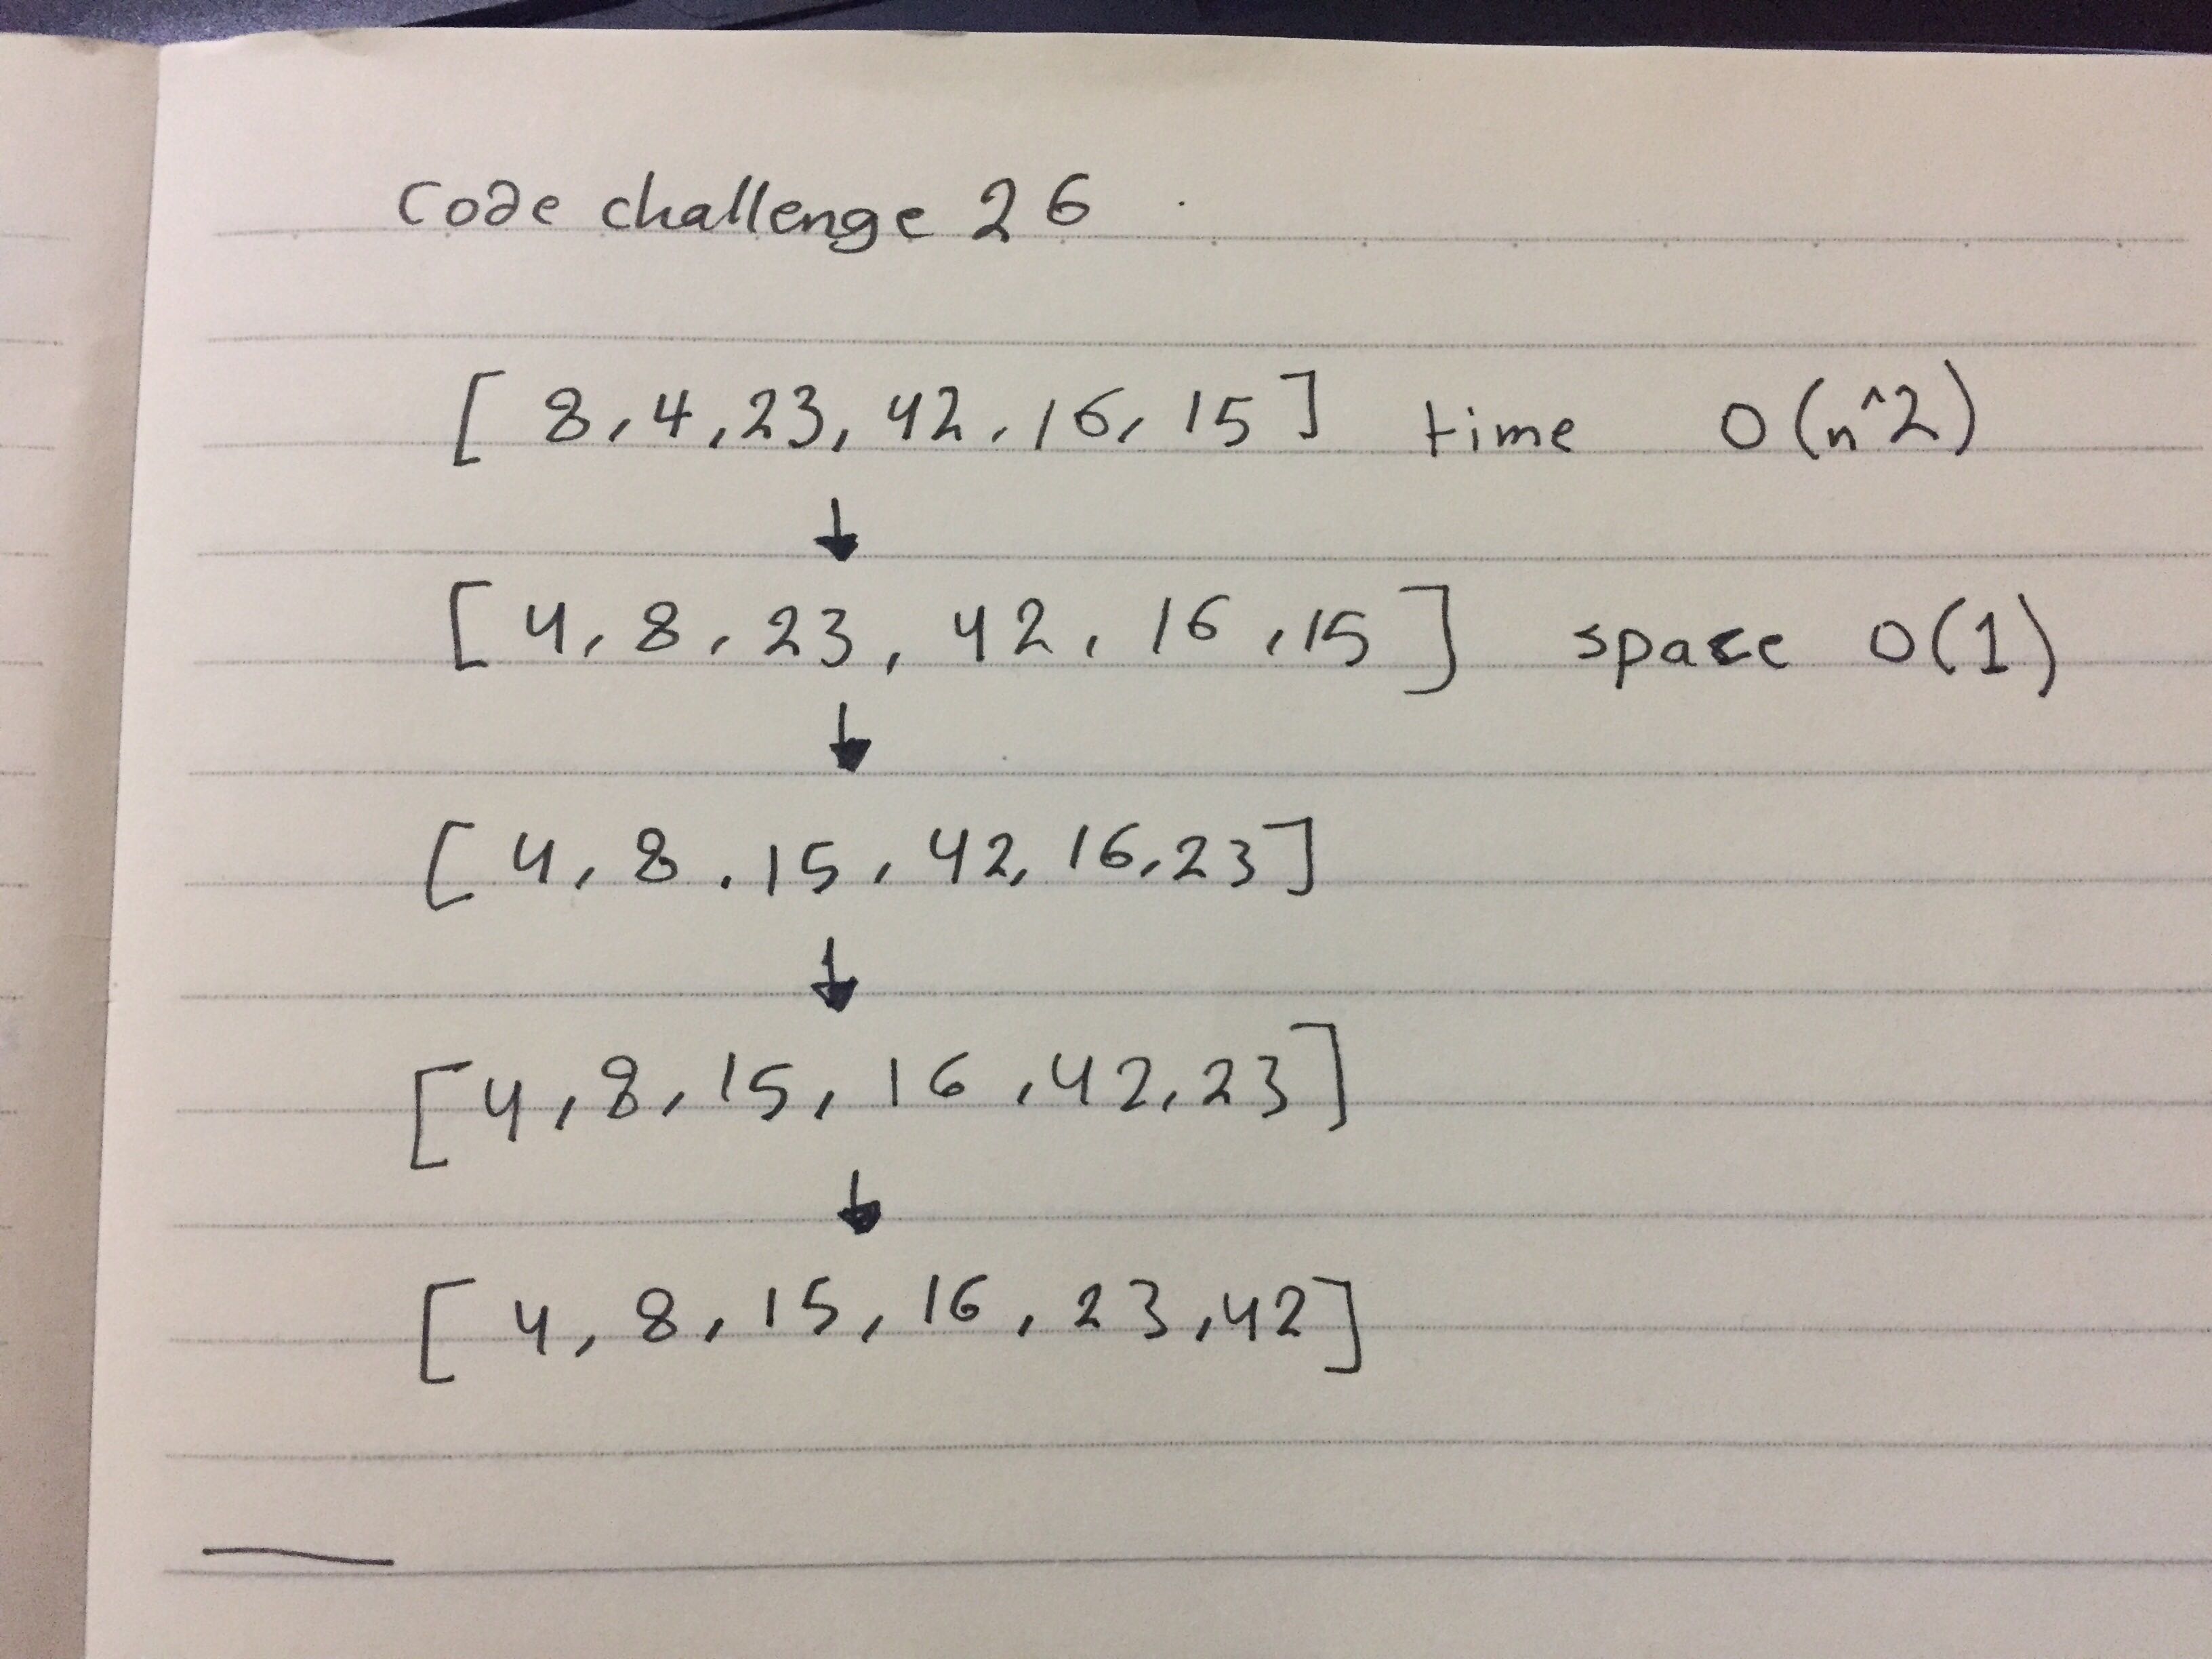 Code challenge 26
[ 8, 4, 23, 42, 16, 15 ] time O(n^2)
↓
[ 4, 8, 23, 42, 16, 15 ] space O(1)
↓
[ 4, 8, 15, 42, 16, 23 ]
↓
[ 4, 8, 15, 16, 42, 23 ]
↓
[ 4, 8, 15, 16, 23, 42 ]